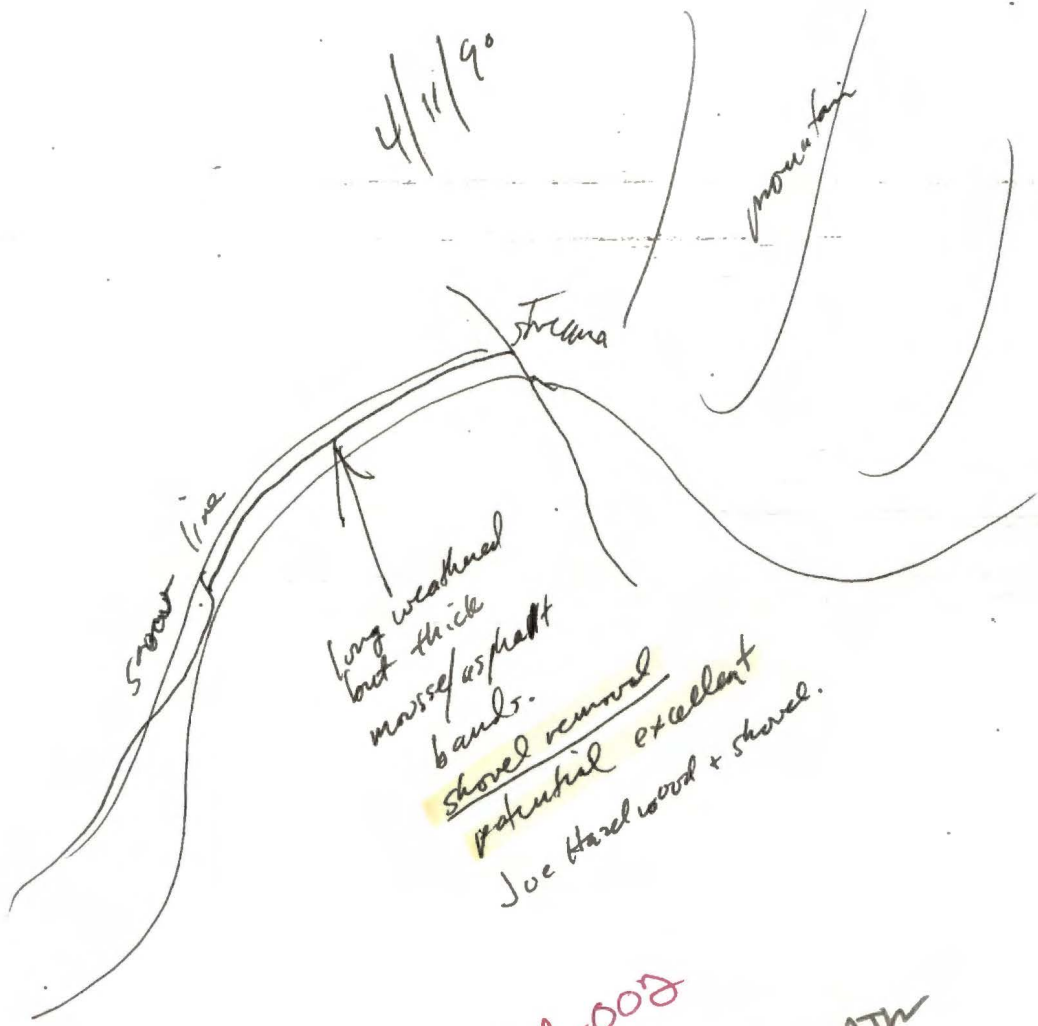 4/11/90
mountain
stream
snow line
long weathered
but thick
mousse/asphalt
bands.
shovel removal
potential excellent
Joe Hazelwood + shovel.